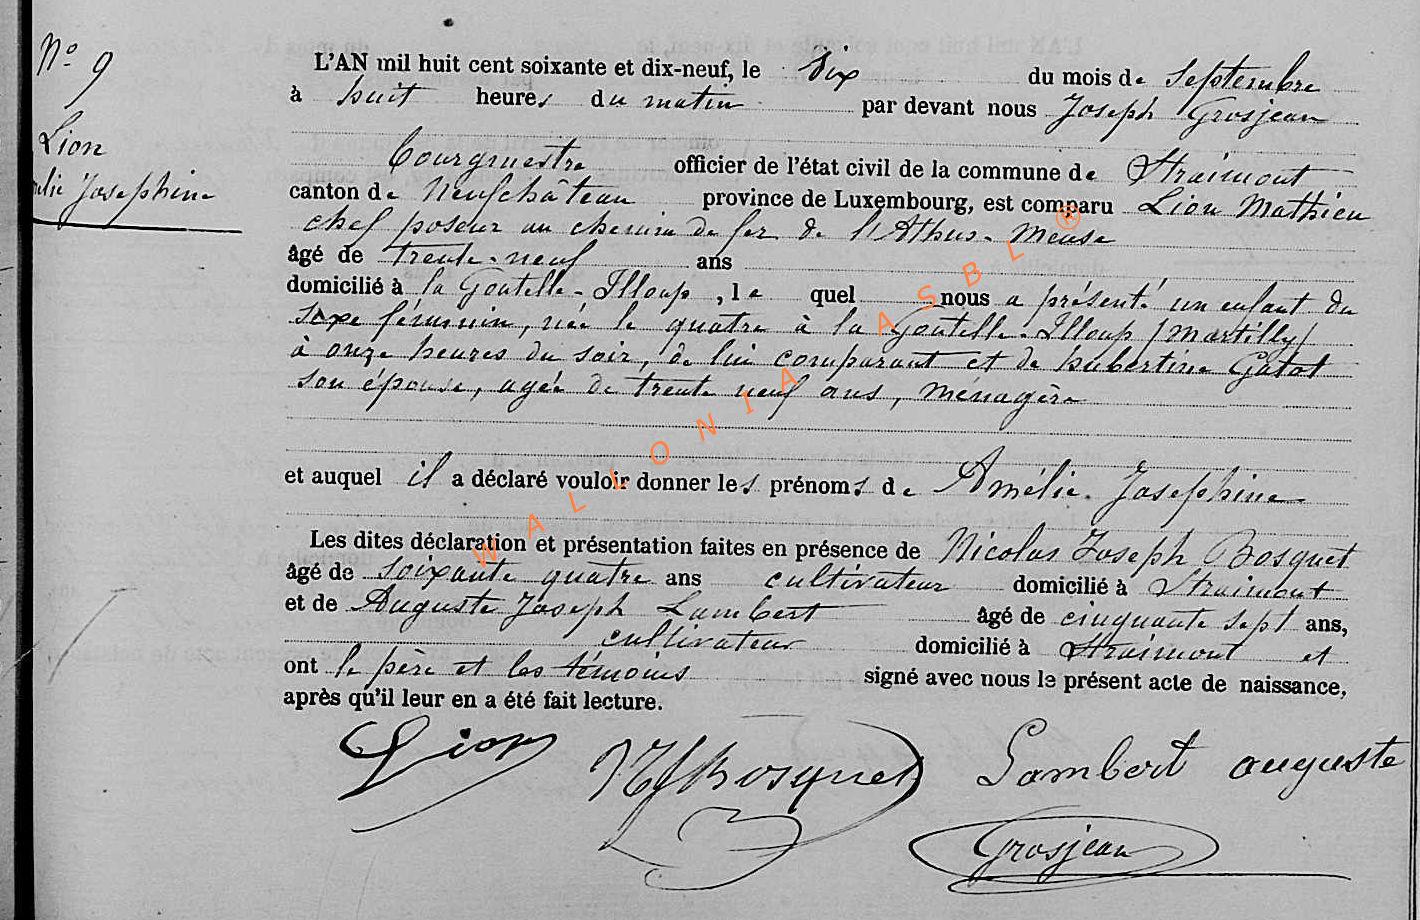 N° 9
Lion
élie Josephine
L'AN mil huit cent soixante et dix-neuf, le six du mois de Septembre
à huit heures du matin par devant nous Joseph Grosjean
Bourgmestre officier de l'état civil de la commune de Straimont
canton de Neufchâteau province de Luxembourg, est comparu Lion Mathieu
chef poseur au chemin de fer de l'Athus-Meuse
âgé de trente-neuf ans
domicilié à la Goutelle-Illoup, le quel nous a présenté un enfant du
sexe féminin, née le quatre à la Goutelle-Illoup (Martilly)
à onze heures du soir, de lui comparant et de hubertine Gatot
son épouse, agée de trente neuf ans, ménagère
et auquel il a déclaré vouloir donner les prénoms de Amélie-Josephine
Les dites déclaration et présentation faites en présence de Nicolas Joseph Bosquet
âgé de soixante quatre ans cultivateur domicilié à Straimont
et de Auguste Joseph Lambert âgé de cinquante sept ans,
cultivateur domicilié à Straimont et
ont le père et les témoins signé avec nous le présent acte de naissance,
après qu'il leur en a été fait lecture.
Lion NJBosquet Lambert auguste
Grosjean
WALLONIA ASBL ®